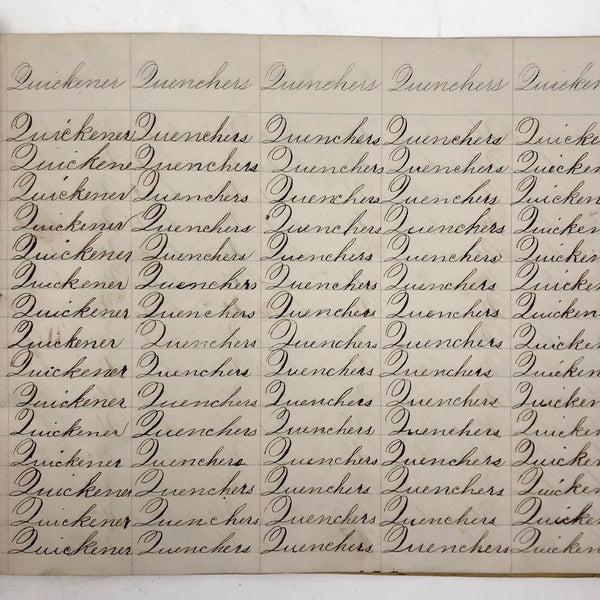 Quickener Quenchers Quenchers Quenchers Quicken
Quickener Quenchers Quenchers Quenchers Quicke
Quickene Quenchers Quenchers Quenchers Quicken
Quickener Quenchers Quenchers Quenchers Quicken
Quickener Quenchers Quenchers Quenchers Quicken
Quickener Quenchers Quenchers Quenchers Quicken
Quickener Quenchers Quenchers Quenchers Quicken
Quickener Quenchers Quenchers Quenchers Quicken
Quickener Quenchers Quenchers Quenchers Quicken
Quickener Quenchers Quenchers Quenchers Quicken
Quickener Quenchers Quenchers Quenchers Quicken
Quickener Quenchers Quenchers Quenchers Quicken
Quickener Quenchers Quenchers Quenchers Quicken
Quickener Quenchers Quenchers Quenchers Quicken
Quickener Quenchers Quenchers Quenchers Quicken
Quickener Quenchers Quenchers Quenchers Quicken